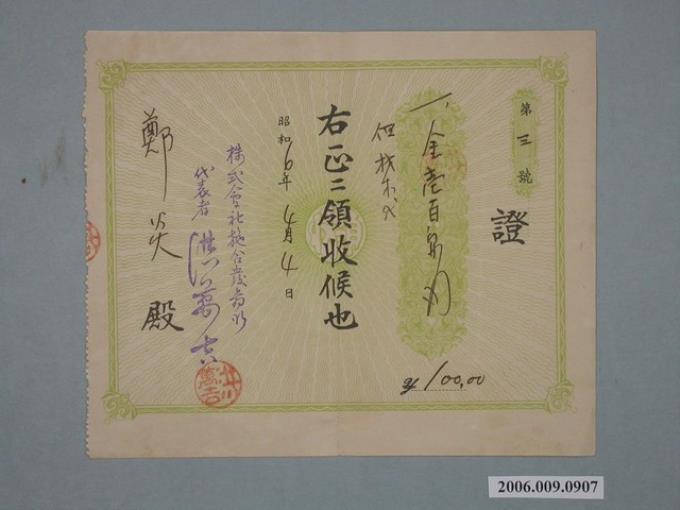 第三號
證
一、金壱百円也
但材木代
¥100.00
右正ニ領收候也
昭和6年4月4日
株式會社施合發商行
代表者 洪萬吉
鄭炎殿
2006.009.0907